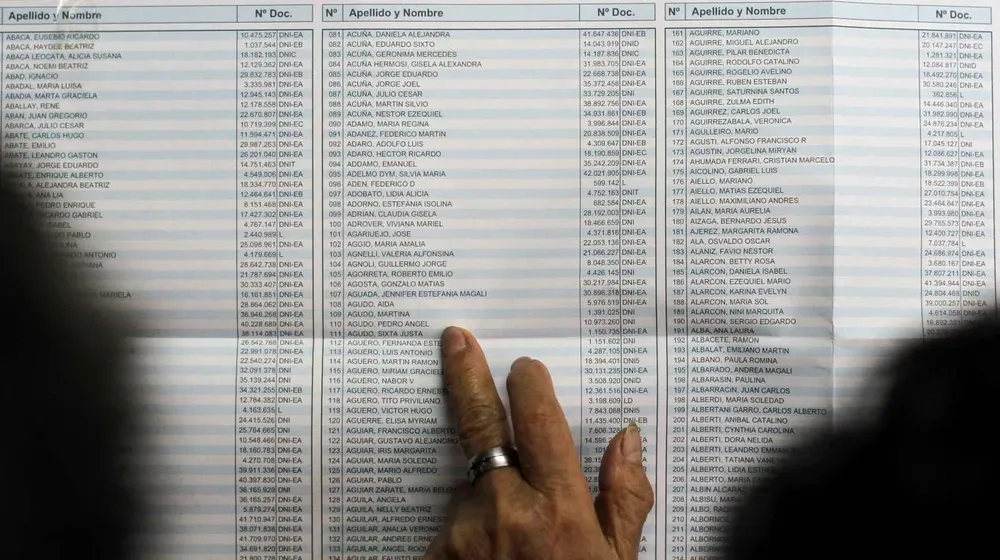 Apellido y Nombre Nº Doc.
ABACA, EUSEBIO RICARDO 10.475.257 DNI-EA
ABACA, HAYDEE BEATRIZ 1.037.544 DNI-EB
ABACA LEOCATA, ALICIA SUSANA 18.182.193 DNIC
ABACA, NOEMI BEATRIZ 12.129.362 DNI-EA
ABAD, IGNACIO 29.832.783 DNI-EB
ABADAL, MARIA LUISA 3.335.981 DNI-EA
ABADIA, MARTA GRACIELA 12.945.143 DNI-EA
ABALLAY, RENE 12.178.558 DNI-EA
ABAN, JUAN GREGORIO 22.670.807 DNI-EA
ABARCA, JULIO CESAR 10.719.399 DNI-EC
ABATE, CARLOS HUGO 11.594.471 DNI-EA
ABATE, EMILIO 29.987.263 DNI-EA
ABATE, LEANDRO GASTON 26.201.040 DNI-EA
JORGE EDUARDO 14.751.463 DNIT
ENRIQUE ALBERTO 4.549.006 DNI-EA
ALEJANDRA BEATRIZ 18.334.770 DNI-EA
ANA LIA 12.464.641 DNI-EB
PEDRO ENRIQUE 8.151.468 DNI-EA
RICARDO GABRIEL 17.427.302 DNI-EA
4.767.147 DNI-EA
PABLO 2.440.989 L
25.096.961 DNI-EA
ANTONIO 4.179.669 L
28.642.738 DNI-EA
21.787.694 DNI-EA
30.333.407 DNI-EA
MARIELA 16.161.851 DNI-EA
28.864.062 DNI-EA
36.946.268 DNI-EA
40.228.689 DNI-EA
38.114.083 DNI-EA
26.542.768 DNI-EA
22.991.078 DNI-EA
22.540.274 DNI-EA
32.091.378 DNI
35.139.244 DNI
34.321.255 DNI-EB
12.784.382 DNI-EA
4.163.635 L
24.415.526 DNI
25.764.665 DNI
10.548.466 DNI-EA
18.160.783 DNI-EA
4.270.708 DNI-EA
39.911.336 DNI-EA
40.397.830 DNI-EA
36.165.929 DNI
36.165.257 DNI-EA
5.879.274 DNI-EA
41.710.947 DNI-EA
38.071.838 DNI-EA
41.709.970 DNI-EB
34.691.820 DNI-EA
Nº Apellido y Nombre Nº Doc.
081 ACUÑA, DANIELA ALEJANDRA 41.647.436 DNI-EB
082 ACUÑA, EDUARDO SIXTO 14.043.919 DNID
083 ACUÑA, GERONIMA MERCEDES 14.187.836 DNIC
084 ACUÑA HERMOSI, GISELA ALEXANDRA 31.983.705 DNI-EA
085 ACUÑA, JORGE EDUARDO 22.668.738 DNI-EA
086 ACUÑA, JORGE JOEL 35.372.458 DNI-EA
087 ACUÑA, JULIO CESAR 33.729.205 DNI
088 ACUÑA, MARTIN SILVIO 38.892.756 DNI-EA
089 ACUÑA, NESTOR EZEQUIEL 34.931.861 DNI-EB
090 ADAMO, MARIA REGINA 3.996.844 DNI-EA
091 ADANEZ, FEDERICO MARTIN 20.838.509 DNI-EA
092 ADARO, ADOLFO LUIS 4.309.647 DNI-EB
093 ADARO, HECTOR RICARDO 18.190.859 DNI-EC
094 ADDAMO, EMANUEL 35.242.209 DNI-EA
095 ADELMO DYM, SILVIA MARIA 42.021.905 DNI-EA
096 ADEN, FEDERICO D 599.142 L
097 ADOBATO, LIDIA ALICIA 4.752.163 DNIT
098 ADORNO, ESTEFANIA ISOLINA 682.584 DNI-EA
099 ADRIAN, CLAUDIA GISELA 28.192.003 DNI-EA
100 ADROVER, VIVIANA MARIEL 18.466.659 DNI
101 AGARUEJO, JOSE 4.371.818 DNI-EA
102 AGGIO, MARIA AMALIA 22.053.136 DNI-EA
103 AGNELLI, VALERIA ALFONSINA 21.066.227 DNI-EA
104 AGNOLI, GUILLERMO JORGE 8.048.350 DNI-EA
105 AGORRETA, ROBERTO EMILIO 4.426.145 DNI
106 AGOSTA, GONZALO MATIAS 30.217.984 DNI-EA
107 AGUADA, JENNIFER ESTEFANIA MAGALI 30.896.318 DNI-EA
108 AGUDO, AIDA 5.976.519 DNI-EA
109 AGUDO, MARTINA 1.391.025 DNI
110 AGUDO, PEDRO ANGEL 10.973.260 DNI
111 AGUDO, SIXTA JUSTA 1.150.735 DNI-EA
112 AGUERO, FERNANDA 1.151.602 DNI
113 AGUERO, LUIS ANTONIO 4.287.105 DNI-EA
114 AGUERO, MARTIN RAMON 18.394.401 DNI5
115 AGUERO, MIRIAM 30.131.235 DNI-EA
116 AGUERO, NABOR V 3.508.920 DNID
117 AGUERO, RICARDO 12.361.516 DNI-EA
118 AGUERO, TITO PRIVILIANO 3.198.609 LD
119 AGUERO, VICTOR HUGO 7.843.068 DNI5
120 AGUERRE, ELISA MYRIAM 11.435.400 DNI-EB
121 AGUIAR, FRANCISCO ALBERTO
122 AGUIAR, GUSTAVO ALEJANDRO
123 AGUIAR, IRIS MARGARITA
124 AGUIAR, MARIA SOLEDAD
125 AGUIAR, MARIO ALFREDO
126 AGUIAR, PABLO
127 AGUIAR ZARATE, MARIA
128 AGUILA, ANGELA
129 AGUILA, NELLY BEATRIZ
130 AGUILAR, ALFREDO
131 AGUILAR, ANALIA
132 AGUILAR, ANDRES
133 AGUILAR, ANGEL
134 AGUILAR, FAUSTO
Nº Apellido y Nombre Nº Doc.
161 AGUIRRE, MARIANO 21.841.891 DNI-EA
162 AGUIRRE, MIGUEL ALEJANDRO 20.147.247 DNI-EC
163 AGUIRRE, PILAR BENEDICTA 1.281.321 DNI-EA
164 AGUIRRE, RODOLFO CATALINO 12.084.817 DNID
165 AGUIRRE, ROGELIO AVELINO 18.492.270 DNI-EA
166 AGUIRRE, RUBEN ESTEBAN 30.580.246 DNI-EA
167 AGUIRRE, SATURNINA SANTOS 362.656 L
168 AGUIRRE, ZULMA EDITH 14.446.340 DNI-EA
169 AGUIRREZ, CARLOS JOEL 31.982.990 DNI-EA
170 AGUIRREZABALA, VERONICA 24.876.234 DNI-EA
171 AGULLEIRO, MARIO 4.217.805 L
172 AGUSTI, ALFONSO FRANCISCO R 17.045.127 DNI
173 AGUSTIN, JORGELINA MIRYAN 12.086.627 DNI-EA
174 AHUMADA FERRARI, CRISTIAN MARCELO 31.734.387 DNI-EB
175 AICOLINO, GABRIEL LUIS 18.299.998 DNI-EA
176 AIELLO, MARIANO 18.522.399 DNI-EB
177 AIELLO, MATIAS EZEQUIEL 27.010.754 DNI-EA
178 AIELLO, MAXIMILIANO ANDRES 23.464.647 DNI-EA
179 AILAN, MARIA AURELIA 3.993.980 DNI-EA
180 AIZAGA, BERNARDO JESUS 29.765.573 DNI-EA
181 AJEREZ, MARGARITA RAMONA 12.400.727 DNI-EA
182 ALA, OSVALDO OSCAR 7.037.784 L
183 ALANIZ, FAVIO NESTOR 24.686.974 DNI-EA
184 ALARCON, BETTY ROSA 3.680.167 DNI-EA
185 ALARCON, DANIELA ISABEL 37.807.211 DNI-EA
186 ALARCON, EZEQUIEL MARIO 41.394.944 DNI-EA
187 ALARCON, KARINA EVELYN 24.804.468 DNID
188 ALARCON, MARIA SOL 39.000.257 DNI-EA
189 ALARCON, NINI MARQUITA 4.614.058
190 ALARCON, SERGIO EDGARDO
191 ALBA, ANA LAURA
192 ALBACETE, RAMON
193 ALBALAT, EMILIANO MARTIN
194 ALBANO, PAULA ROMINA
195 ALBARADO, ANDREA MAGALI
196 ALBARASIN, PAULINA
197 ALBARRACIN, JUAN CARLOS
198 ALBERDI, MARIA SOLEDAD
199 ALBERTANI GARRO, CARLOS ALBERTO
200 ALBERTI, ANIBAL CATALINO
201 ALBERTI, CYNTHIA CAROLINA
202 ALBERTI, DORA NELIDA
203 ALBERTI, LEANDRO
204 ALBERTI, TATIANA
205 ALBERTO, LIDIA
206 ALBERTO, MARIA
207 ALBIN
208 ALBISU,
209 ALBO,
210
211
212
213